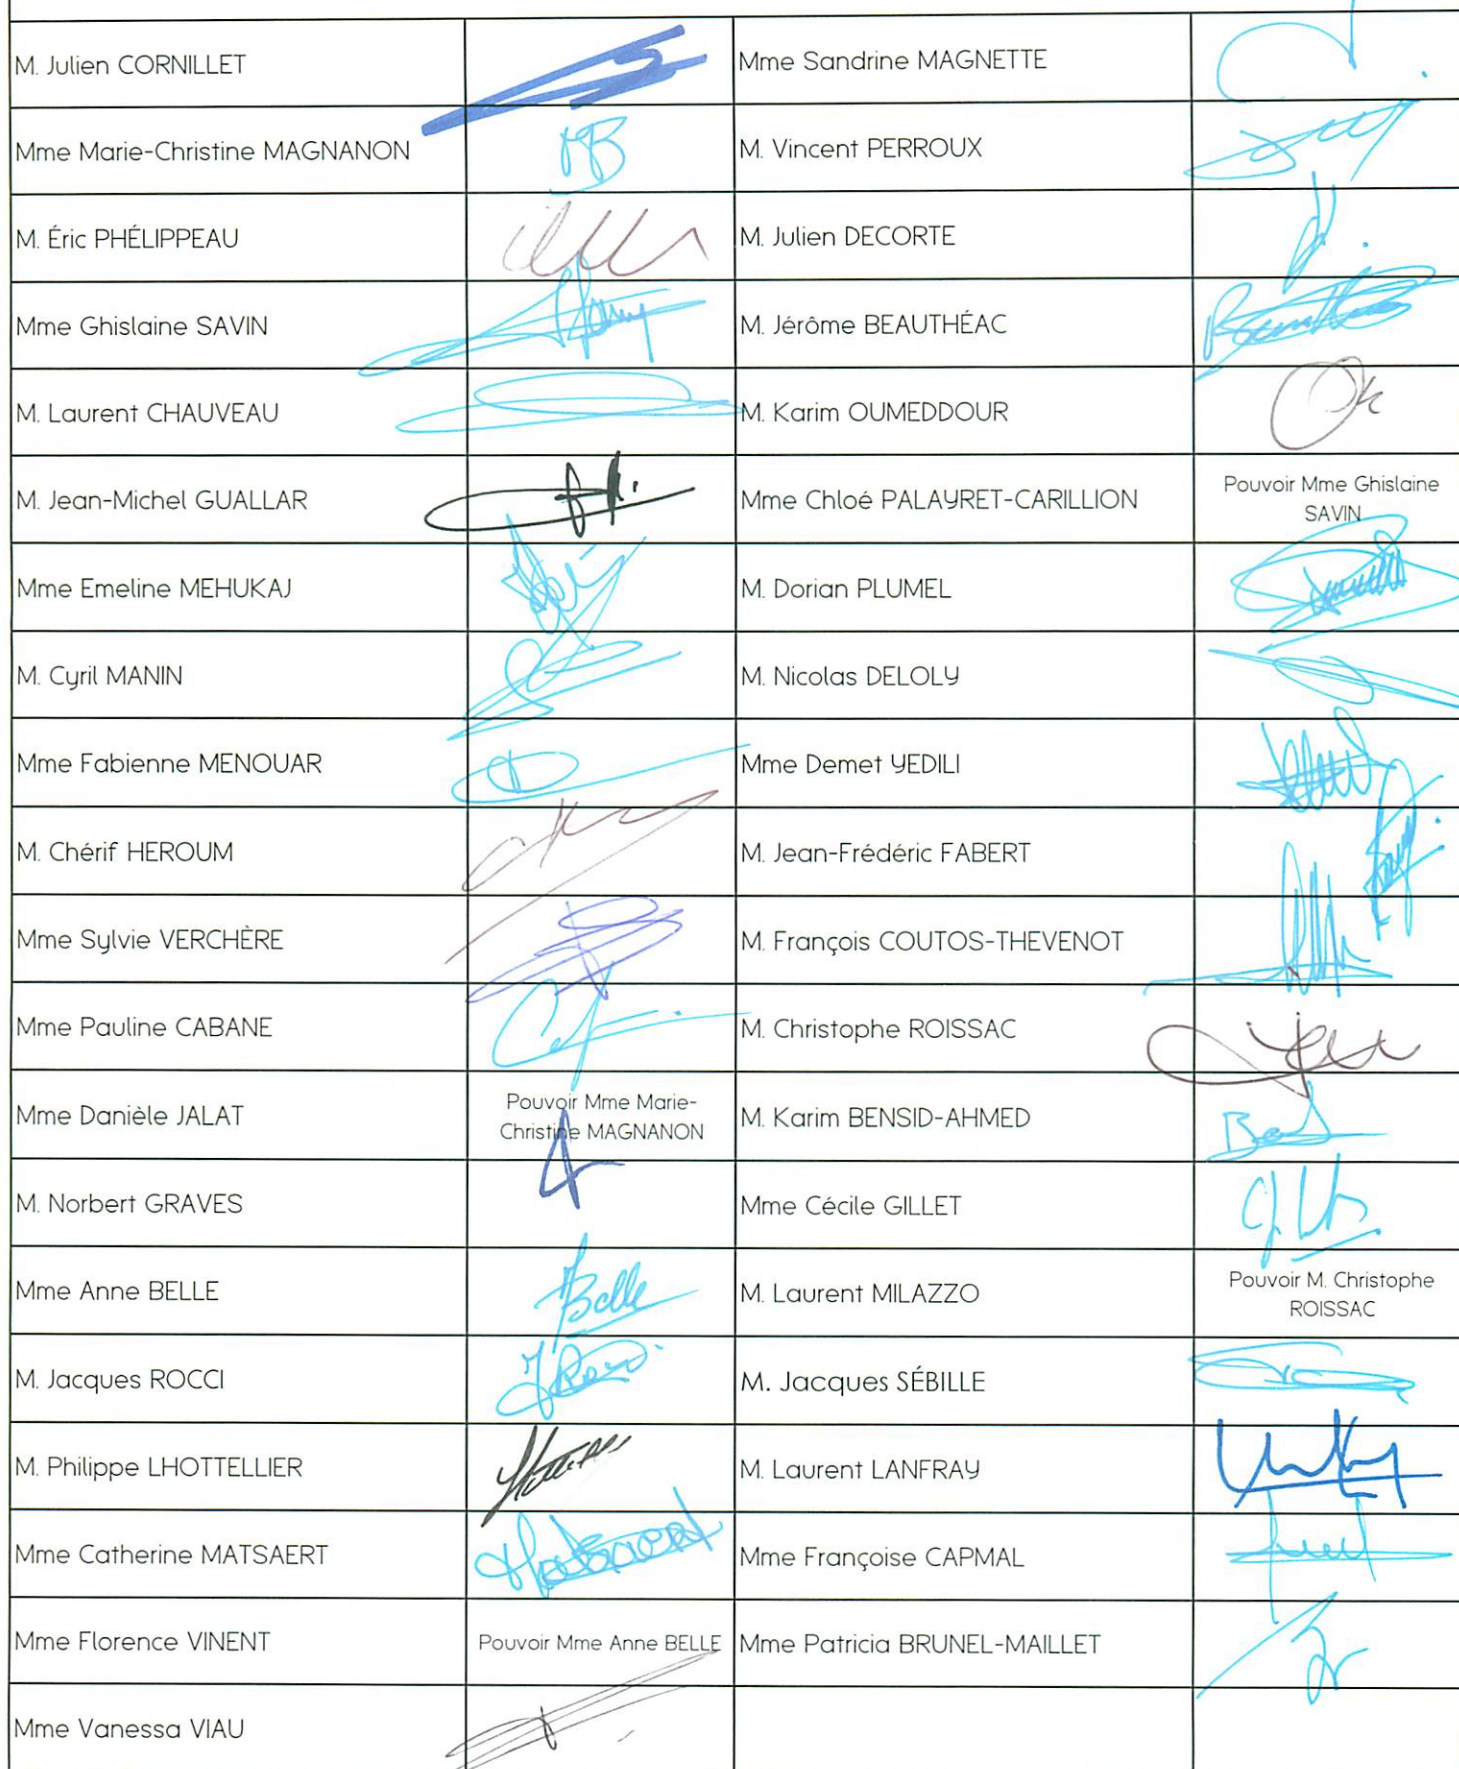 M. Julien CORNILLET
Mme Sandrine MAGNETTE
Mme Marie-Christine MAGNANON
MB
M. Vincent PERROUX
M. Éric PHÉLIPPEAU
M. Julien DECORTE
Mme Ghislaine SAVIN
M. Jérôme BEAUTHÉAC
M. Laurent CHAUVEAU
M. Karim OUMEDDOUR
OK
M. Jean-Michel GUALLAR
Mme Chloé PALAYRET-CARILLION
Pouvoir Mme Ghislaine
SAVIN
Mme Emeline MEHUKAJ
M. Dorian PLUMEL
M. Cyril MANIN
M. Nicolas DELOLY
Mme Fabienne MENOUAR
Mme Demet YEDILI
M. Chérif HEROUM
M. Jean-Frédéric FABERT
Mme Sylvie VERCHÈRE
M. François COUTOS-THEVENOT
Mme Pauline CABANE
M. Christophe ROISSAC
Mme Danièle JALAT
Pouvoir Mme Marie-
Christine MAGNANON
M. Karim BENSID-AHMED
M. Norbert GRAVES
Mme Cécile GILLET
Mme Anne BELLE
Belle
M. Laurent MILAZZO
Pouvoir M. Christophe
ROISSAC
M. Jacques ROCCI
M. Jacques SÉBILLE
M. Philippe LHOTTELLIER
M. Laurent LANFRAY
Mme Catherine MATSAERT
Matsaert
Mme Françoise CAPMAL
Mme Florence VINENT
Pouvoir Mme Anne BELLE
Mme Patricia BRUNEL-MAILLET
Mme Vanessa VIAU